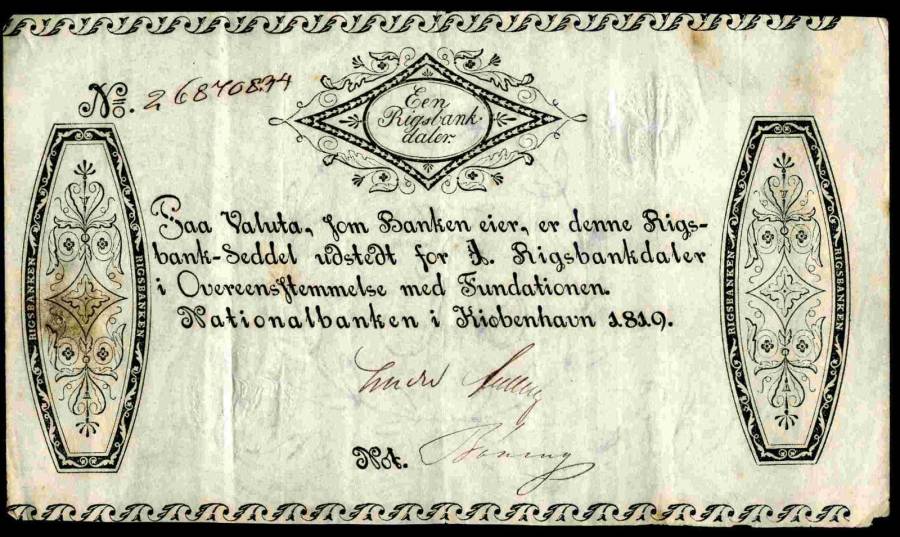 No. 2687087
Een
Rigsbank-
daler.
RIGSBANKEN RIGSBANKEN
RIGSBANKEN RIGSBANKEN
Paa Valuta, som Banken eier, er denne Rigs-
bank-Seddel udstedt for 1. Rigsbankdaler
i Overeensstemmelse med Fundationen.
Nationalbanken i Kiøbenhavn 1819.
Not.